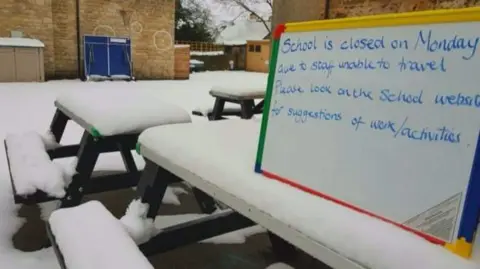 School is closed on Monday
due to staff unable to travel
Please look on the School website
for suggestions of work/activities.